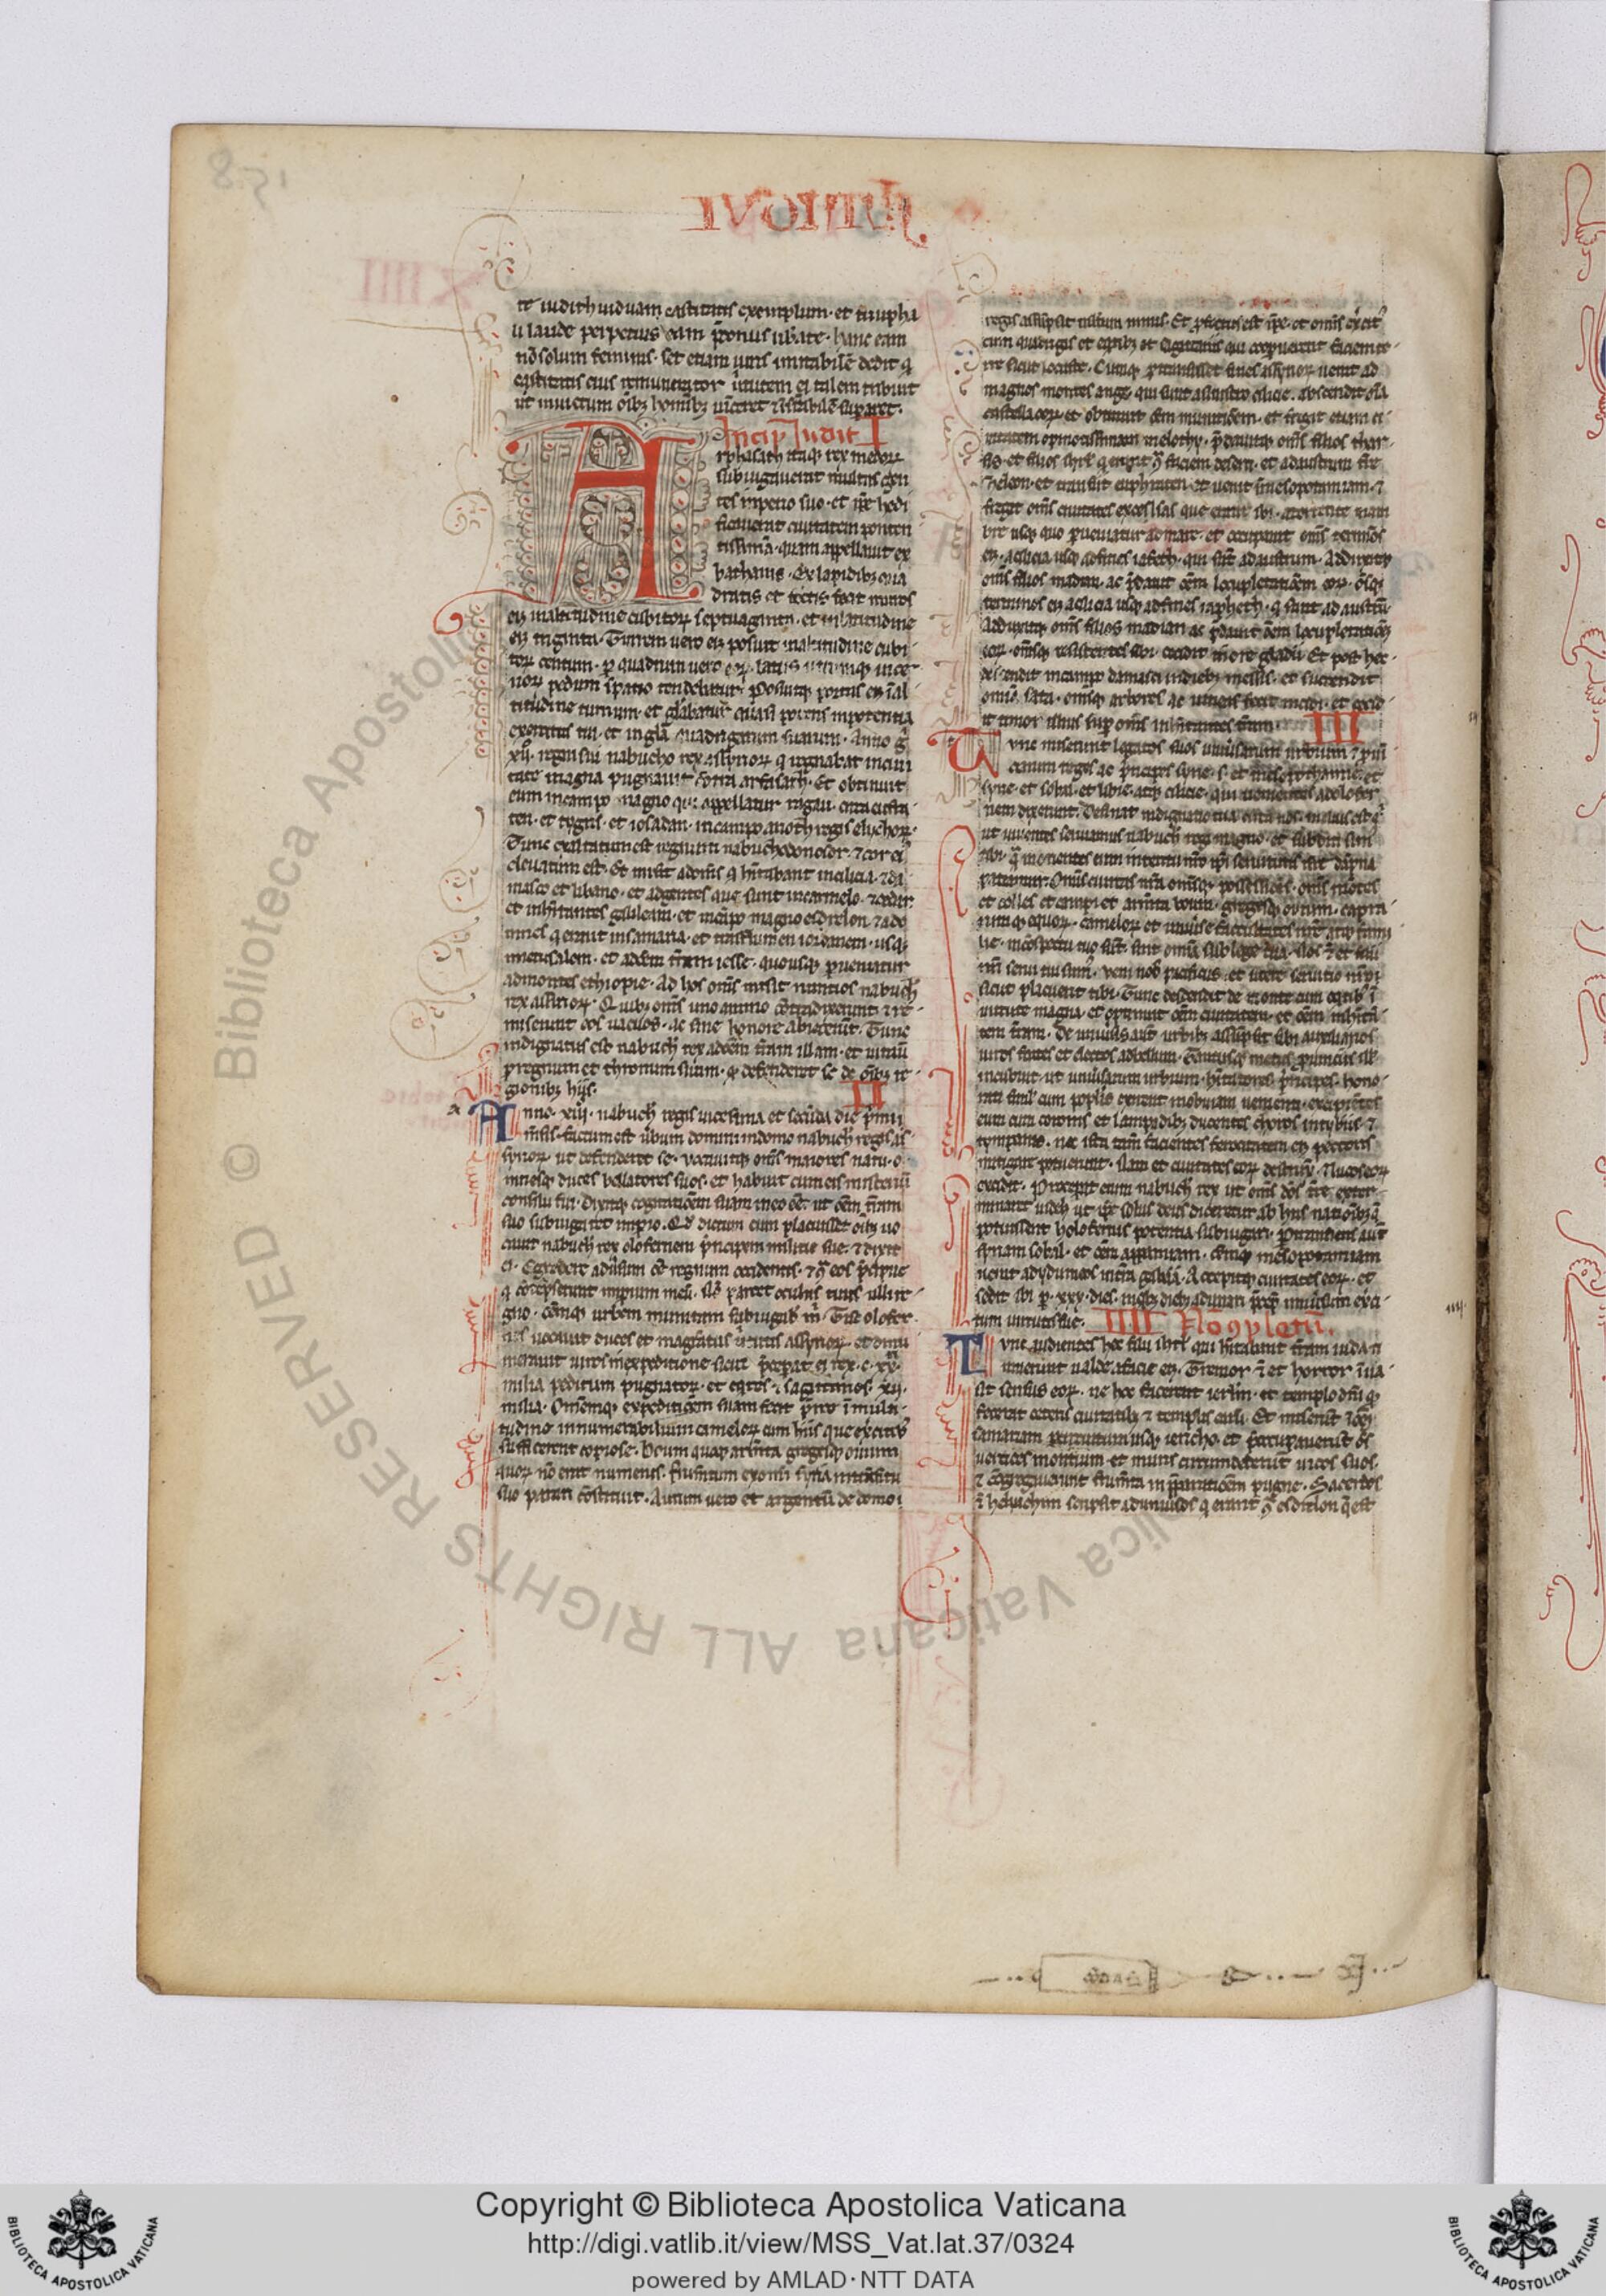 te iudith uiduam castitatis exemplum · et triupha
li laude perpetuis eam p̄coniis ..... hanc eam
nō solum feminis · set etiam uiris imitabilē dedit q̇
castitatis eius remunerator ūtutem ei talem tribuit
ut inuictum ōibꝫ hominibꝫ uīceret
Incip̄ Iudit I
rphasath itaqꝫ rex medoꝝ
subiugauerat multas gen
tes imperio suo · et ip̄e hedi
ficauerat ciuitatem poten
tissimā · quam appellauit eg
bathanis · Ex lapidibꝫ qua
dratis et sectis · fecit muros
eiꝰ in altitudine cubitoꝝ septuaginta · et in latitudine
eiꝰ triginta · Turrem uero eiꝰ posuit in altitudine cubi
toꝝ centum · ꝑ quadrum uero eoꝝ · latus utrumqꝫ uice
noꝝ pedum spatio tendebatur · Posuitqꝫ portas eiꝰ ī al
titudine turrium · et gl̄abatur quasi potens in potentia
exercitus sui · et in gl̄a quadrigarum suarum · Anno
xii · regni sui nabucho rex assyrioꝝ q̇ regnabat in ciui
tate magna pugnauit cōtra arfasath · Et obtinuit
eum in campo magno qui appellatur ragau · circa eufra
ten · et tygris · et iosadan · in campo
Tunc exaltatum est regnum nabuchodonosor · ⁊ cor eiꝰ
eleuatum est · Et misit ad om̄s q̇ hītabant in cilicia · ⁊ da
masco et libano · et ad gentes que sunt in carmelo · ⁊ cedar ·
et inhītantes galileam · et in cāpo magno esdrelon · ⁊ ad o
mnes q̇ erant in samaria · et trans flumen iordanem · usqꝫ
ierusalem · et ad om̄em tr̄am iesse · quousqꝫ ꝑueniatur
ad montes ethiopie · Ad hos om̄s misit nuntios nabuch̄
rex assirioꝝ · Qui om̄s uno animo cōtradixerunt · ⁊ re
miserunt eos uacuos · ac sine honore abiecerūt · Tunc
indignatus est nabuch̄ rex ad om̄em tr̄am illam · et iurauit
ꝑ regnum et thronum suum · qđ defenderet se de ōibꝫ re
gionibꝫ hiis · II
Anno · xiii · nabuch̄ regis uicesima et secūda die p̄mi
m̄sis · factum est ūbum domini in domo nabuch̄ regis as
syrioꝝ ut defenderet se · vocauitqꝫ om̄s maiores natu · o
mnesqꝫ duces bellatores suos · et habuit cum eis misteriū
consilii sui · Dixitqꝫ cogitationem suam in eo esse · ut om̄em tr̄am
suo subiugaret imperio · Qđ dictum cum placuisset ōibꝫ uo
cauit nabuch̄ rex olofernem p̄ncipem militie sue · ⁊ dixit
ei · Egredere aduersum om̄e regnum occidentis · ⁊ cōtra eos p̄cipue
q̇ cōtempserunt imperium meū · Nō parcet oculus tuus ulli re
gno · om̄emqꝫ urbem munitam subiugabis m̄ · Tunc olofer
nes uocauit duces et magistratus ūtutis assyrioꝝ · et dinu
merauit uiros in expeditione sicut p̄cepit ei rex · c · xx ·
milia peditum pugnatoꝝ · et equites · sagittarios · xii ·
milia · Omnemqꝫ expeditionem suam fecit p̄ire ī multi
tudine innumerabilium cameloꝝ cum hiis que exercitibꝰ
sufficerent copiose · Boum quoqꝫ armenta gregesqꝫ ouium
quoꝝ nō erat numerus · frumentum ex omni syria in transitu
suo parari cōstituit · Aurum uero et argentū de domo
regis assūpsit multum nimis · Et ꝓfectus est ip̄e · et om̄is exercit
cum quadrigis et equitibꝫ et sagittariis qui cooperuerunt faciem ter
re sicut locuste · Cumqꝫ ꝑtransisset fines assyrioꝝ uenit ad
magnos montes ange · qui sunt a sinistro cilicie · ascendit oīa
castella eoꝝ · et obtinuit om̄em munitionem · et fregit etiam ci
uitatem opinatissimam melothy · p̄dauitqꝫ om̄s filios thar
sis · et filios isrl̄ q̇ erant contra faciem deserti · et ad austrum tr̄e
cleon · et transiit euphraten · et uenit in mesopotamiam · ⁊
fregit om̄s ciuitates excelsas que erant ibi · a torrente mam
bre usqꝫ quo ꝑueniatur ad mare · et occupauit om̄s terminos
eiꝰ · a cilicia usqꝫ ad fines iafeth · qui sūt ad austrum · Adduxitqꝫ
om̄s filios madian · ac p̄dauit om̄em locupletationem eoꝝ ·
terminos eiꝰ a cilicia usqꝫ ad fines iapheth · q̇ sunt ad austrū
Adduxitqꝫ om̄s filios madian ac p̄dauit om̄em locupletationem
eoꝝ · om̄sqꝫ resistentes sibi · occidit in ore gladii · Et post hec
descendit in campo damasci in diebꝫ messis · et succendit
omnia sata · omnesqꝫ arbores ac uineas fecit incidi · et cecid
it timor illius super om̄s inhītantes tr̄am · III
Tunc miserunt legatos suos uniuersarum urbium ⁊ ꝓuī
ciarum reges ac p̄ncipes syrie · s · et mesopothamie · et
syrie · et sobal · et libie · atqꝫ cilicie · qui uenientes ad olofer
nem dixerunt · Desinat indignatio tua circa nos · melius est
ut uiuentes seruiamus nabuch̄ regi magno · et subditi sim
tibi · q̄ morientes cum interitu nr̄o ip̄i seruitutis nr̄e dāpna
patiamur · Omnis ciuitas nr̄a omnisqꝫ possessio · om̄s mōtes
et colles et campi et armenta boum · gregesqꝫ ouium · capra
rumqꝫ equoꝝ · cameloꝝ et uniuerse facultates nr̄e atqꝫ fami
lie · in cōspectu tuo sūt · sint omnia sub lege tua · Nos et filii
nr̄i serui tui sumus · veni nob̄ pacificus · et utere seruitio nr̄o
sicut placuerit tibi · Tunc descendit de monte cum equitibꝫ ī
uirtute magna · et optinuit om̄em ciuitatem · et om̄em inhītan
tem tr̄am · De uniuersis aut̄ urbibꝫ assūpsit sibi auxiliarios
uiros fortes et electos ad bellum · Tantusqꝫ metus ꝓuinciis illis
incubuit · ut uniuersarum urbium · hītatores · p̄ncipes · hono
rati simul cum populis exirent in obuiam uenienti · excipientes
eum cum coronis et lampadibꝫ ducentes choros in tybiis · ⁊
tympanis · nec ista tamen facientes ferocitatem eiꝰ pectoris
mitigare potuerunt · Nam et ciuitates eoꝝ destruxit · ⁊ lucos eoꝝ
excidit · Precepit enim nabuch̄ rex ut om̄s deos tr̄e exter
minaret uidelicet ut ip̄e solus deus diceretur ab hiis nationibꝫ q̄
potuissent holofernis potentia subiugari · Pertransiens aut̄
syriam sobal · et om̄em appamiam · om̄emqꝫ mesopotamiam
uenit ad ydumeos in tr̄a gabaa · Accepitqꝫ ciuitates eoꝝ · et
sedit ibi ꝑ · xxx · dies · in quibꝫ diebꝫ adunari p̄cepit uniuersum exerci
tum uirtutis sue · IIII
Tunc audientes hec filii isrl̄ qui hītabant tr̄am iuda ti
muerunt ualde a facie eiꝰ · Tremor et horror īua
sit sensus eoꝝ · ne hoc faceret ierl̄m · et templo dn̄i qđ
fecerat ceteris ciuitatibꝫ ⁊ templis earū · Et miserūt ī om̄em
samariam per circuitum usqꝫ iericho · et p̄occupauerūt om̄s
uertices montium · et muris circumdederūt uicos suos ·
⁊ cōgregauerunt frumenta in p̄parationem pugne · Sacerdos
helyachim scripsit ad uniuersos q̇ erant contra esdrelon q̄ est
Copyright © Biblioteca Apostolica Vaticana
http://digi.vatlib.it/view/MSS_Vat.lat.37/0324
powered by AMLAD·NTT DATA